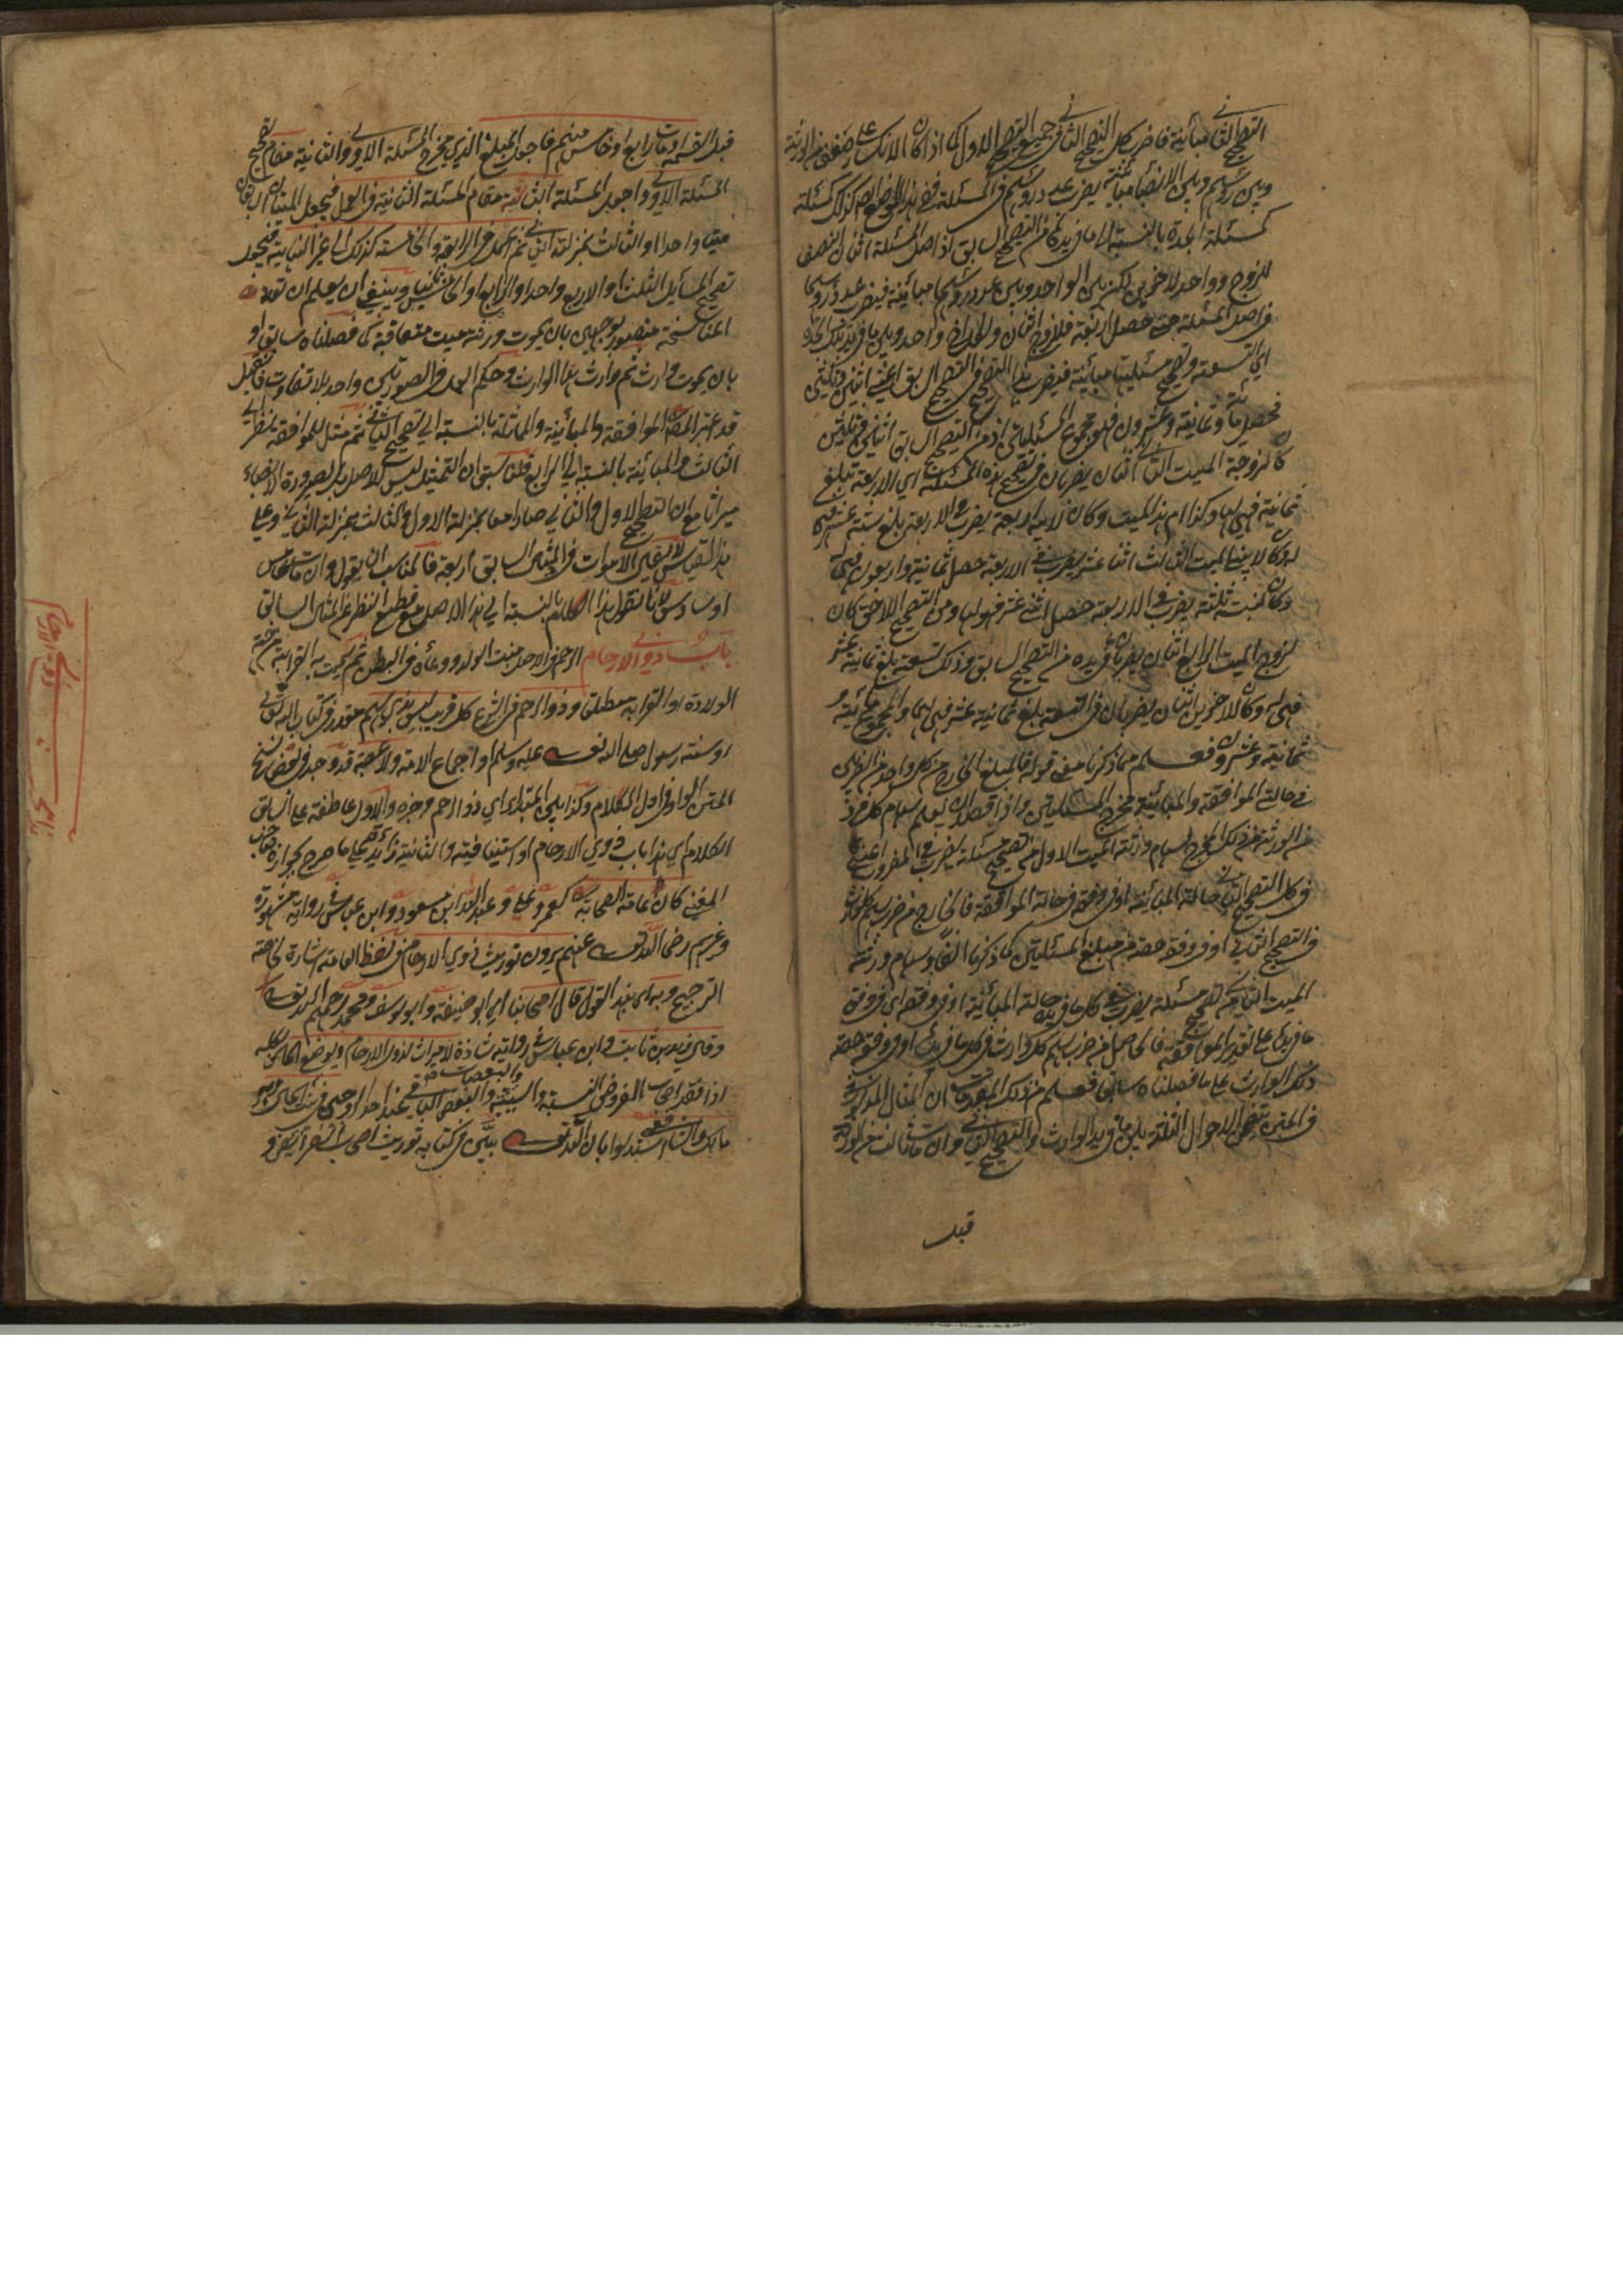 التصحيح الثاني مباينة فاضرب كل التصحيح الثاني في جميع التصحيح الاول كما اذا كان الانكسار على صنف من الورثة
وبين رؤسهم وبين الانصباء مباينة يضرب عدد رؤسهم في المسئلة ففي هذا الموضع ايضا كذلك كمسئلة
كمسئلة الجدة بالنسبة الى ما في يدها من التصحيح السابق اذ اصل المسئلة اثنان النصف
للزوج وواحد للاخوين لكن بين الواحد وبين عدد رؤسهما مباينة فيضرب عدد رؤسهما
في اصل المسئلة حتى حصل اربعة فللزوج اثنان ولكل اخ واحد وبين ما في يد تلك الجدة
اي التسعة وتصحيح مسئلتها مباينة فيضرب هذا التصحيح في التصحيح السابق اعني اثنين وثلثين
فحصل مائة وثمانية وعشرون فهو مخرج المسئلتين اذ من التصحيح السابق اثنين وثلثين
كان لزوجة الميت الثاني اثنان يضربان في تصحيح هذه المسئلة اي الاربعة تبلغ
ثمانية فهي لها وكذا ام هذا الميت وكان لابيه اربعة يضرب في الاربعة بلغ ستة عشر فهي
له وكان لابني الميت الثالث اثنا عشر يضرب في الاربعة حصل ثمانية واربعون فهي له
وكان لبنته ثلثة يضرب في الاربعة حصل اثنى عشر فهو لها ومن التصحيح اللاحق كان
لزوج الميت الرابع اثنان يضربان في يده من التصحيح السابق وذلك تسعة بلغ ثمانية عشر
فهي له وكان لاخوين اثنان يضربان في التسعة بلغ ثمانية عشر فهي لهما والمجموع مائة و
ثمانية وعشرون فعلم مما ذكرنا معنى قوله فالمبلغ الخارج من كل واحد من الضربين
في حالتي الموافقة والمباينة مخرج المسئلتين واذا قصد ان يعلم سهام كل فرد
من الورثة من ذلك المخرج فسهام ورثة الميت الاول من تصحيح مسئلته يضرب في المضروب اعني
في كل التصحيح الثاني حالة المباينة او في وفقه في حالة الموافقة فالخارج من ضرب سهم كل وارث
في التصحيح الثاني او في وفقه حصته من مبلغ المسئلتين كما ذكرنا آنفا وسهام ورثة
الميت الثاني من تصحيح مسئلته يضرب في كل ما في يده حالة المباينة او في وفقه اي في وفق
ما في يده على تقدير الموافقة فالحاصل من ضرب سهم كل وارث في كل ما في يده او في وفقه حصة
ذلك الوارث على ما فصلناه سابقا فعلم من ذلك المقدمات ان المثال المذكور
في المتن متضمن الاحوال الثلثة بين ما في يد الوارث والتصحيح الثاني وان مات ثالث من الورثة
قبل
قبل القسمة ومات رابع او خامس منهم فاجعل المبلغ الذي يخرج المسئلة الاولى والثانية مقام تصحيح
المسئلة الاولى واجعل المسئلة الثالثة مقام المسئلة الثانية في العمل فيجعل الميتان السابقان
ميتا واحدا والثالث بمنزلة الثاني ثم اعمل في الرابعة والخامسة كذلك الى غير النهاية فيجعل
تصحيح المسايل الثلث او الاربع واحدا والرابع او الخامس ثانيا وينبغي ان يعلم ان توالي
المناسخة متصور بوجهين بان يموت ورثة ميت متعاقبة كما فصلناه سابقا او
بان يموت وارث ثم وارث هذا الوارث وحكم العمل في الصورتين واحد بلا تفاوت فان قيل
قد اعتبر المص الموافقة والمباينة والمماثلة بالنسبة الى تصحيح الثاني ثم مثل للموافقة بالنظر الى
الثالث والمباينة بالنسبة الى الرابع قلنا سبق ان التمثيل ليس للاصل بل لصيرورة الانصباء
ميراثا مع ان التصحيح الاول والثاني صارا معا بمنزلة الاول والثالث بمنزلة الثاني وعلى
هذا القياس لا يبقى الاموات في المثال السابق اربعة فالمناسب ان يقول وان مات خامس
او سادس لانا نقول هذا الكلام بالنسبة الى هذا الاصل مع قطع النظر عن المثال السابق
باب ذوي الارحام الرحم في الاصل منبت الولد ووعاؤه في البطن ثم سميت به القرابة من جهة
الولادة او القرابة مطلقا وذو الرحم في الشرع كل قريب ليس بذي سهم مقدر في كتاب الله تعالى
او سنة رسول صلى الله تعالى عليه وسلم او اجماع الامة ولا عصبة قد وجد في بعض نسخ
المتن الواو في اول الكلام وكذا بين المبتداء اي ذو الرحم وخبره والاول عاطفة على السابق
الكلام اي هذا باب في ذوي الارحام او استينافية والثانية زائدة على ما صرح بجوازه صاحب
المغني كان عامة الصحابة كعمر وعلي وعبد الله ابن مسعود وابن عباس في رواية مشهورة
وغيرهم رضي الله تعالى عنهم يرون توريث ذوي الارحام ففي لفظ العامة اشارة لطيفة
الترجيح وبه اي بهذا القول قال اصحابنا اي ابو حنيفة وابو يوسف ومحمد رحمهم الله تعالى
وقال زيد بن ثابت وابن عباس في رواية شاذة لا ميراث لذوي الارحام ويوضع المال كله
اذا فقد اصحاب الفروض النسبية والسببية والعصبات والبعض الباقي عند احدهم في بيت المال وبه
مالك والشافعي استدلوا بان الله تعالى بيّن في كتابه توريث اصحاب الفرائض و
ذوي الارحام